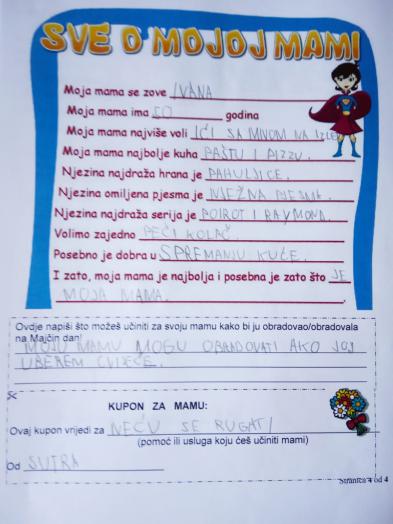 SVE O MOJOJ MAMI
Moja mama se zove IVANA
Moja mama ima 50 godina
Moja mama najviše voli IĆI SA MNOM NA IZLET
Moja mama najbolje kuha PAŠTU I PIZZU.
Njezina najdraža hrana je PAHULJICE.
Njezina omiljena pjesma je NJEŽNA PJESMA.
Njezina najdraža serija je POIROT I RAYMOND.
Volimo zajedno PEĆI KOLAČ.
Posebno je dobra u SPREMANJU KUĆE.
I zato, moja mama je najbolja i posebna je zato što JE
MOJA MAMA.
Ovdje napiši što možeš učiniti za svoju mamu kako bi ju obradovao/obradovala
na Majčin dan!
MOJU MAMU MOGU OBRADOVATI AKO JOJ
UBEREM CVIJEĆE.
KUPON ZA MAMU:
Ovaj kupon vrijedi za NEĆU SE RUGATI
(pomoć ili usluga koju ćeš učiniti mami)
Od SUTRA
Stranica 4 od 4